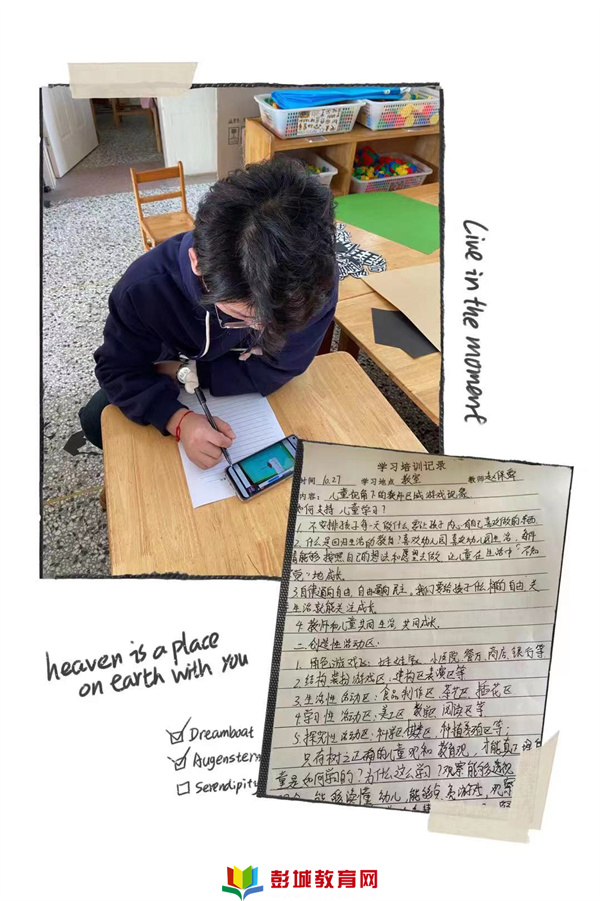 Live in the moment
学习培训记录
时间 10.27 学习地点 教室 教师
内容：儿童视角下的教师区域游戏观察
如何支持儿童学习？
1. 不安排孩子每一天做什么，要让孩子内
2. 什么是回归生活教育？喜欢幼儿园，喜欢幼儿园生活，每件
能够按照自己的想法和愿望去做，让儿童在生活中“不知
觉”地成长
3. 自由 自由 民主，我们要给孩子什么样的自由，关
注生活就能关注成长
4. 教师和儿童共同生活，共同成长
二、创造性活动区：
1. 角色游戏区：娃娃家、小医院、餐厅、商店、银行等
2. 结构装扮游戏区：建构区表演区等
3. 生活性活动区：食品制作区、茶艺区、插花区
4. 学习性活动区：美工区、数学区、阅读区等
5. 探究性活动区：科学区、 种植养殖区等；
只有树立正确的儿童观和教育观，才能真正
童是如何学的？为什么这么学？观察能够透视
能够读懂幼儿，能结合 游戏，观察
heaven is a place
on earth with you
Dreamboat
Augenstern
Serendipity
彭城教育网